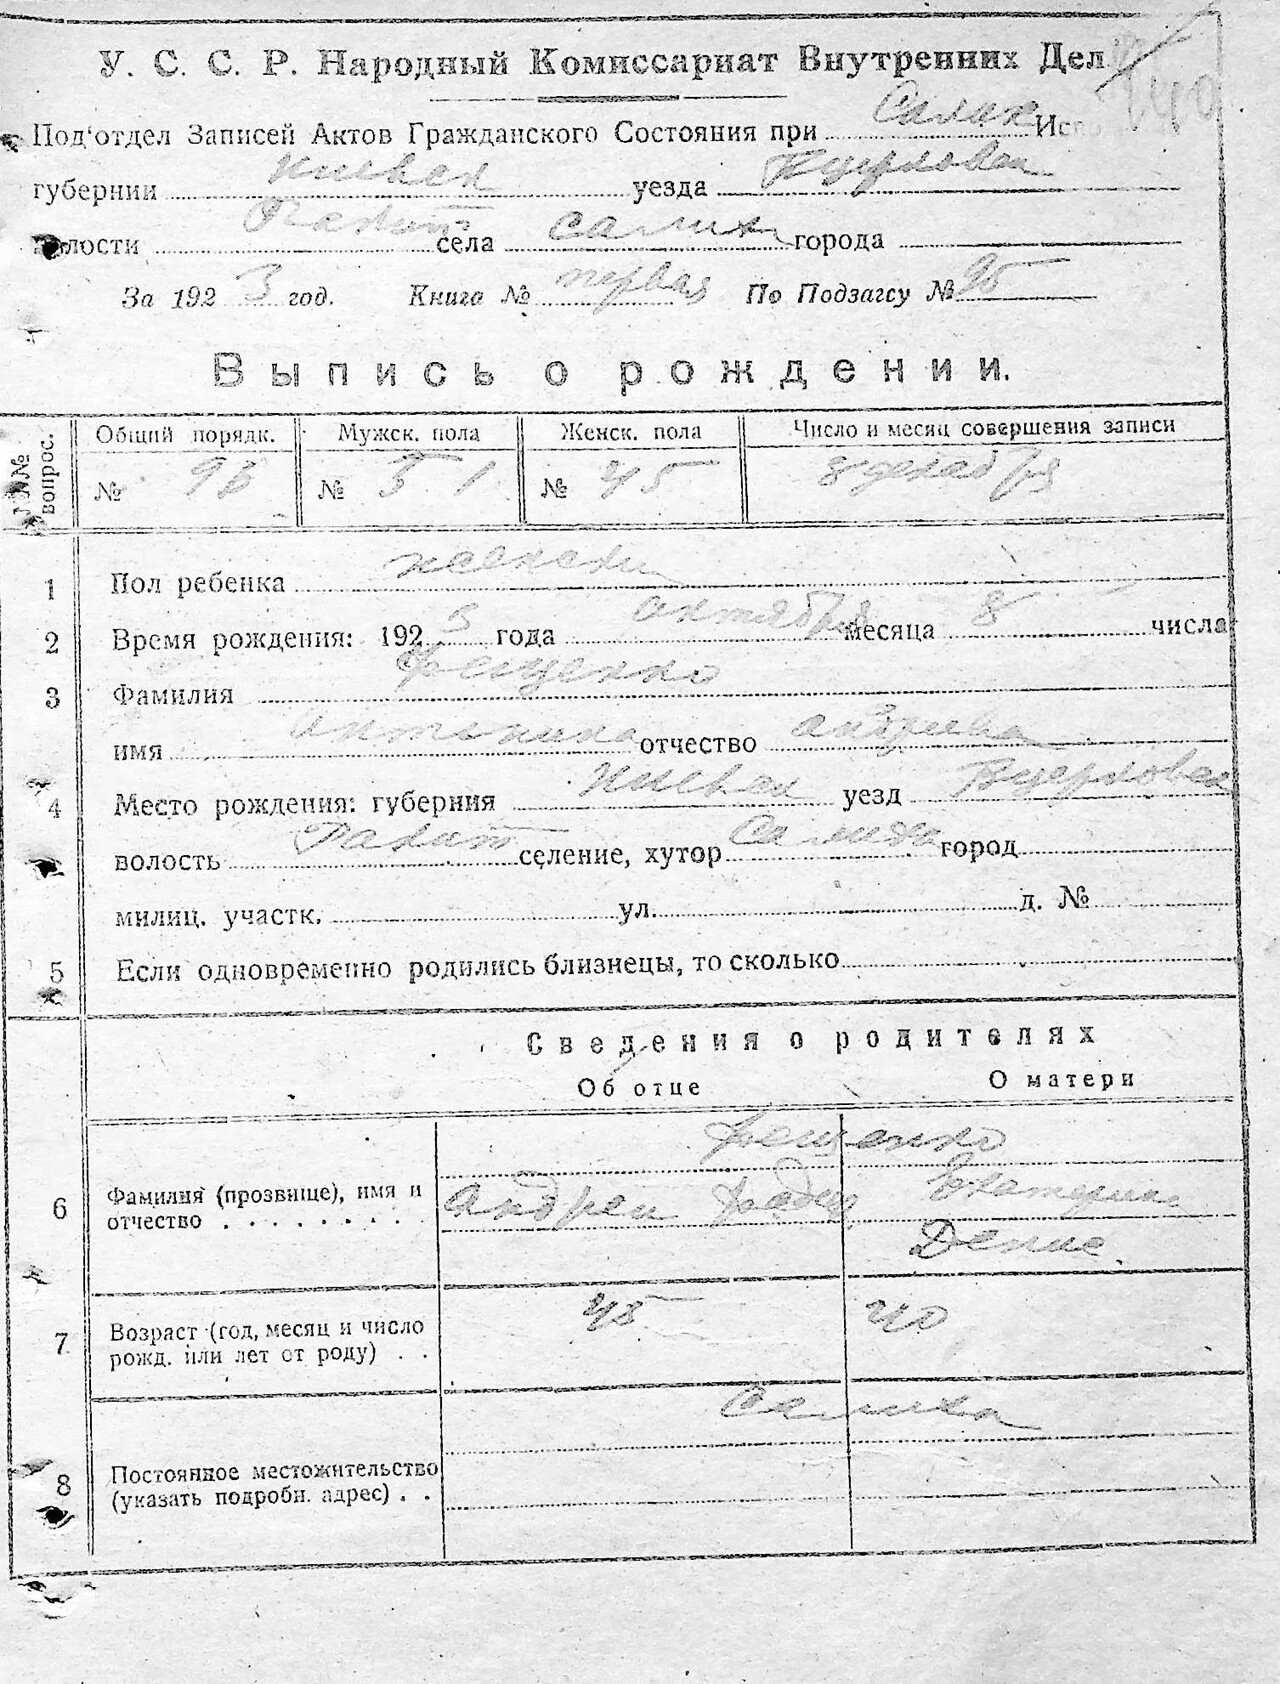 У. С. С. Р. Народный Комиссариат Внутренних Дел
140
Под'отдел Записей Актов Гражданского Состояния при Салих Исп
губернии Киевск уезда Бцерковск
волости Ракит села Салиха города
За 1923 год. Книга № первая По Подзагсу № 95
Выпись о рождении.
№№ вопрос. Общий порядк. Мужск. пола Женск. пола Число и месяц совершения записи
№ № 51 № 45 8 декабря
1 Пол ребенка женски
2 Время рождения: 1923 года октября месяца 8 числа
3 Фамилия Фещенко
имя Антонина отчество Андреева
4 Место рождения: губерния Киевск уезд Бцерковск
волость Ракит селение, хутор Салиха город
милиц. участк. ул. д. №
5 Если одновременно родились близнецы, то сколько
Сведения о родителях
Об отце О матери
Фещенко
6 Фамилия (прозвище), имя и Андрей Екатерина
отчество Денис
7 Возраст (год, месяц и число 45 40
рожд. или лет от роду)
Салиха
8 Постоянное местожительство
(указать подробн. адрес)